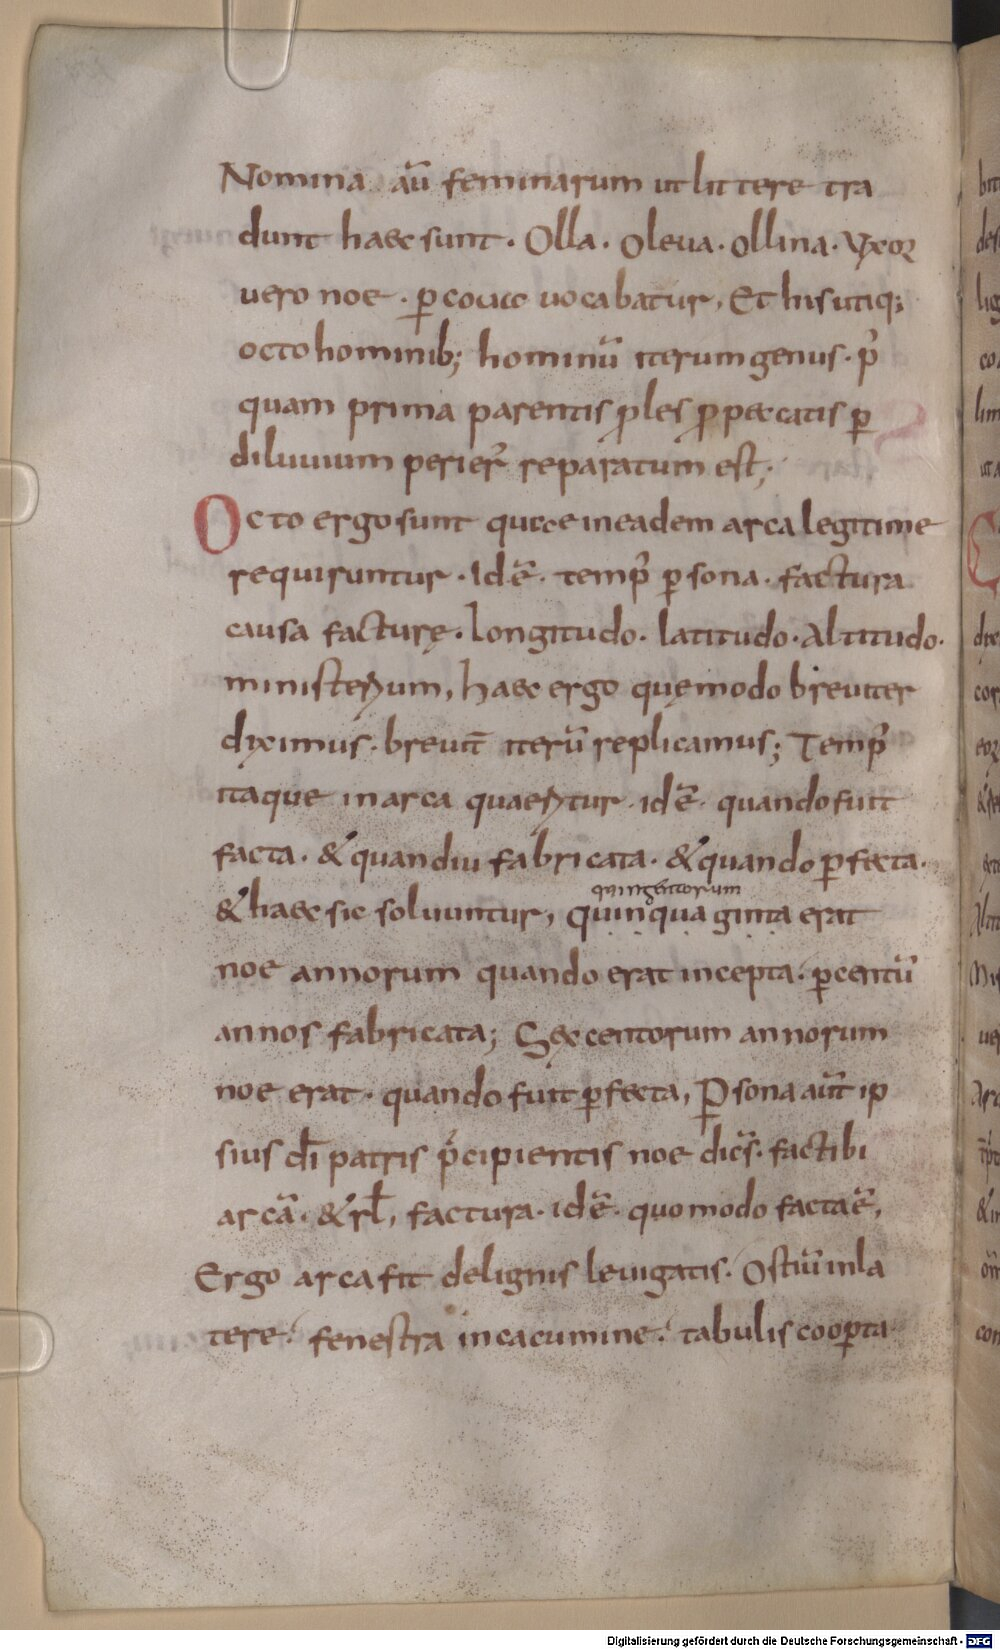 Nomina aū feminarum ut littere tra
dunt haec sunt · Olla · oleua · ollina · Vxor
uero noe · ꝑcoucc uocabatur, Et his utiq;
octo hominib; hominū iterum genus · p̄
quam prima parentis ꝓles ꝓ peccatis ꝑ
diluuium perier̄ reparatum est;
Octo ergo sunt quae in eadem arca legitime
requiruntur · Idē · temp̄ ꝑsona · factura
causa facturę · longitudo · latitudo · Altitudo ·
ministeryum, haec ergo quęmodo breuiter
diximus · breuit̄ iterū replicamus; Temp̄
itaque in arca quaerytur · idē · quando fuit
facta · & quandiu fabricata · & quando ꝑfecta ·
quingentorum
& haec sic soluuntur, quinquaginta erat
noe annorum quando erat incepta · ꝑ centū
annos fabricata; Sexcentorum annorum
noe erat · quando fuit ꝑfecta, Ꝑsona aūt ip
sius dī patris p̄cipientis noe dicēs · fac tibi
arcā · & rł, factura · idē · quomodo facta ē,
Ergo arca fit de lignis leuigatis · Ostiū in la
tere · fenestra in cacumine · tabulis cooꝑta
Digitalisierung gefördert durch die Deutsche Forschungsgemeinschaft - DFG